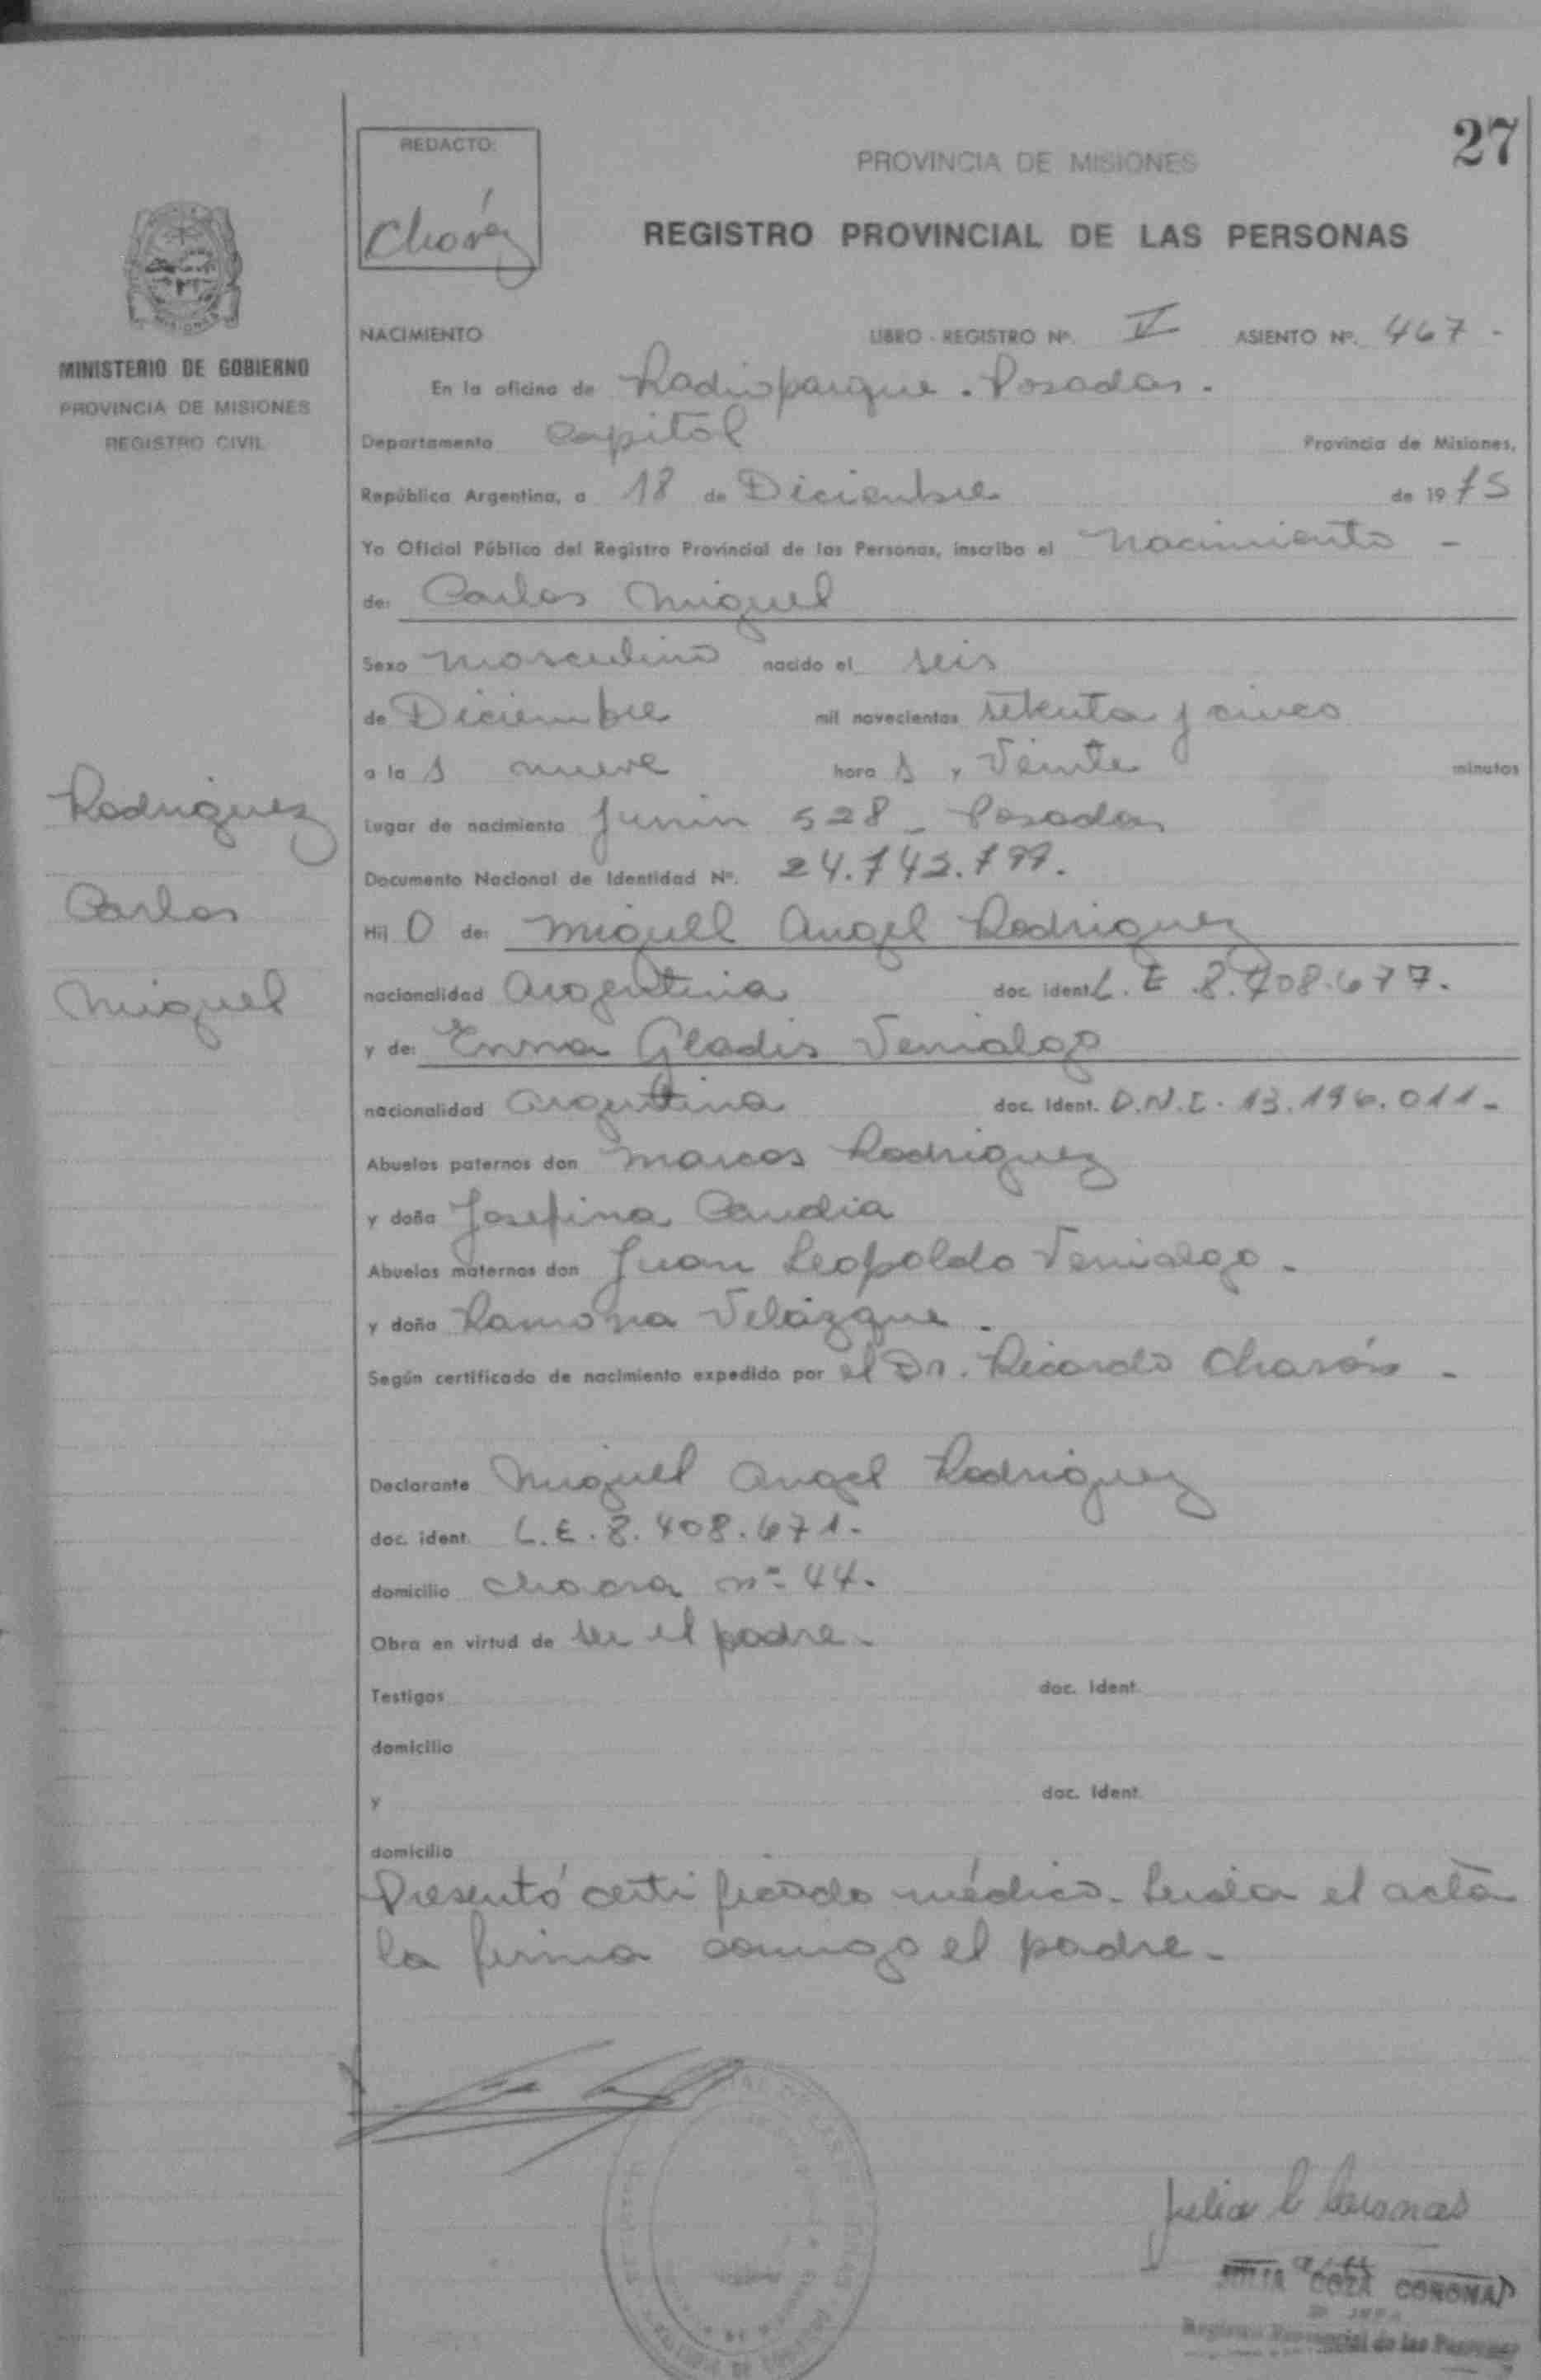 27
REDACTO:
Chávez
PROVINCIA DE MISIONES
REGISTRO PROVINCIAL DE LAS PERSONAS
MISIONES
MINISTERIO DE GOBIERNO
PROVINCIA DE MISIONES
REGISTRO CIVIL
NACIMIENTO LIBRO - REGISTRO Nº. V ASIENTO Nº. 467 -
En la oficina de Radioparque - Posadas -
Departamento Capital Provincia de Misiones,
República Argentina, a 18 de Diciembre de 1975
Yo Oficial Público del Registro Provincial de las Personas, inscribo el Nacimiento -
de: Carlos Miguel
Sexo Masculino nacido el seis
de Diciembre mil novecientos setenta y cinco
a las nueve horas y Veinte minutos
Lugar de nacimiento Junin 528 - Posadas
Documento Nacional de Identidad Nº. 24.743.799.
Rodriguez
Carlos
Miguel
Hijo de: Miguel Angel Rodriguez
nacionalidad Argentina doc. ident. L.E 8.408.677.
y de: Enna Gladis Venialgo
nacionalidad Argentina doc. Ident. D.N.I. 13.196.011-
Abuelos paternos don Marcos Rodriguez
y doña Josefina Candia
Abuelos maternos don Juan Leopoldo Venialgo -
y doña Ramona Velázque -
Según certificado de nacimiento expedido por el Dr. Ricardo -
Declarante Miguel Angel Rodriguez
doc. ident. L.E. 8.408.671-
domicilio chacra nº 44.
Obra en virtud de ser el padre -
Testigos doc. Ident.
domicilio
y doc. Ident.
domicilio
Presentó certificado médico - Leida el acta
la firma conmigo el padre -
Julia C
JULIA CORONA
Registro Provincial de las Personas